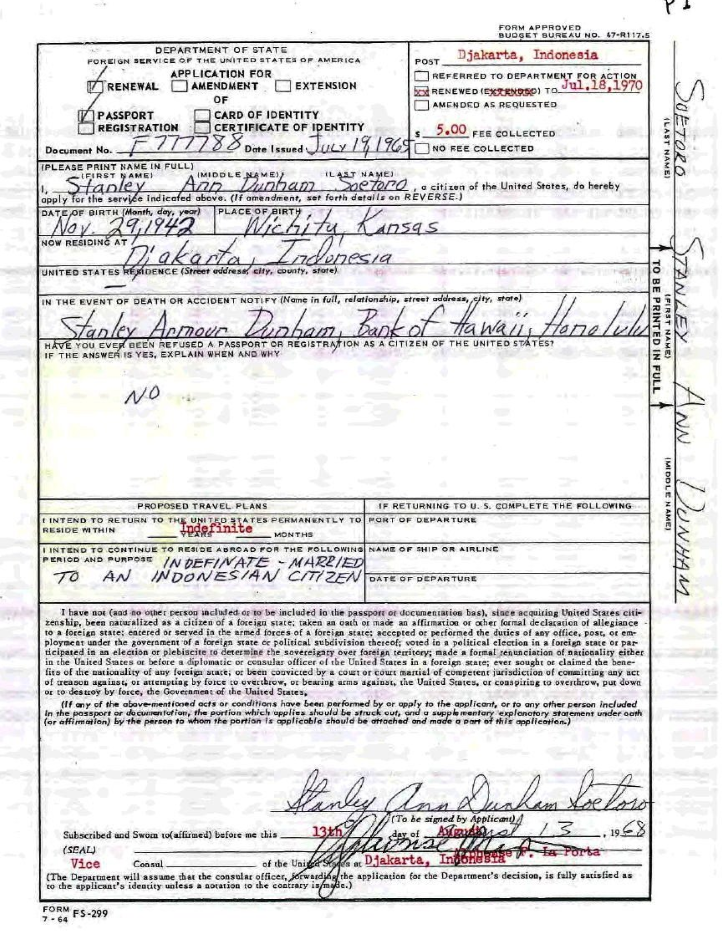 P1
FORM APPROVED
BUDGET BUREAU NO. 47-R117.5
DEPARTMENT OF STATE
FOREIGN SERVICE OF THE UNITED STATES OF AMERICA
APPLICATION FOR
RENEWAL AMENDMENT EXTENSION
OF
PASSPORT CARD OF IDENTITY
REGISTRATION CERTIFICATE OF IDENTITY
Document No. F777788 Date Issued JULY 19, 1965
POST Djakarta, Indonesia
REFERRED TO DEPARTMENT FOR ACTION
xx RENEWED (EXTENDED) TO Jul,18,1970
AMENDED AS REQUESTED
$ 5.00 FEE COLLECTED
NO FEE COLLECTED
(PLEASE PRINT NAME IN FULL)
(FIRST NAME) (MIDDLE NAME) (LAST NAME)
I, Stanley Ann Dunham Soetoro, a citizen of the United States, do hereby
apply for the service indicated above. (If amendment, set forth details on REVERSE.)
DATE OF BIRTH (Month, day, year) PLACE OF BIRTH
Nov. 29, 1942 Wichita, Kansas
NOW RESIDING AT
Djakarta, Indonesia
UNITED STATES RESIDENCE (Street address, city, county, state)
—
IN THE EVENT OF DEATH OR ACCIDENT NOTIFY (Name in full, relationship, street address, city, state)
Stanley Armour Dunham, Bank of Hawaii, Honolulu
HAVE YOU EVER BEEN REFUSED A PASSPORT OR REGISTRATION AS A CITIZEN OF THE UNITED STATES?
IF THE ANSWER IS YES, EXPLAIN WHEN AND WHY
NO
PROPOSED TRAVEL PLANS
I INTEND TO RETURN TO THE UNITED STATES PERMANENTLY TO
RESIDE WITHIN Indefinite
YEARS MONTHS
I INTEND TO CONTINUE TO RESIDE ABROAD FOR THE FOLLOWING
PERIOD AND PURPOSE INDEFINATE - MARRIED
TO AN INDONESIAN CITIZEN
IF RETURNING TO U. S. COMPLETE THE FOLLOWING
PORT OF DEPARTURE
NAME OF SHIP OR AIRLINE
DATE OF DEPARTURE
I have not (and no other person included or to be included in the passport or documentation has), since acquiring United States citi-
zenship, been naturalized as a citizen of a foreign state; taken an oath or made an affirmation or other formal declaration of allegiance
to a foreign state; entered or served in the armed forces of a foreign state; accepted or performed the duties of any office, post, or em-
ployment under the government of a foreign state or political subdivision thereof; voted in a political election in a foreign state or par-
ticipated in an election or plebiscite to determine the sovereignty over foreign territory; made a formal renunciation of nationality either
in the United States or before a diplomatic or consular officer of the United States in a foreign state; ever sought or claimed the bene-
fits of the nationality of any foreign state; or been convicted by a court or court martial of competent jurisdiction of committing any act
of treason against, or attempting by force to overthrow, or bearing arms against, the United States, or conspiring to overthrow, put down
or to destroy by force, the Government of the United States.
(If any of the above-mentioned acts or conditions have been performed by or apply to the applicant, or to any other person included
in the passport or documentation, the portion which applies should be struck out, and a supplementary explanatory statement under oath
(or affirmation) by the person to whom the portion is applicable should be attached and made a part of this application.)
Stanley Ann Dunham Soetoro
(To be signed by Applicant)
Subscribed and Sworn to(affirmed) before me this 13th day of August 13, 1968
(SEAL) F. La Porta
Vice Consul of the United States at Djakarta, Indonesia
(The Department will assume that the consular officer, forwarding the application for the Department's decision, is fully satisfied as
to the applicant's identity unless a notation to the contrary is made.)
FORM FS-299
7 - 64
(LAST NAME) (FIRST NAME) (MIDDLE NAME)
TO BE PRINTED IN FULL
SOETORO STANLEY ANN DUNHAM